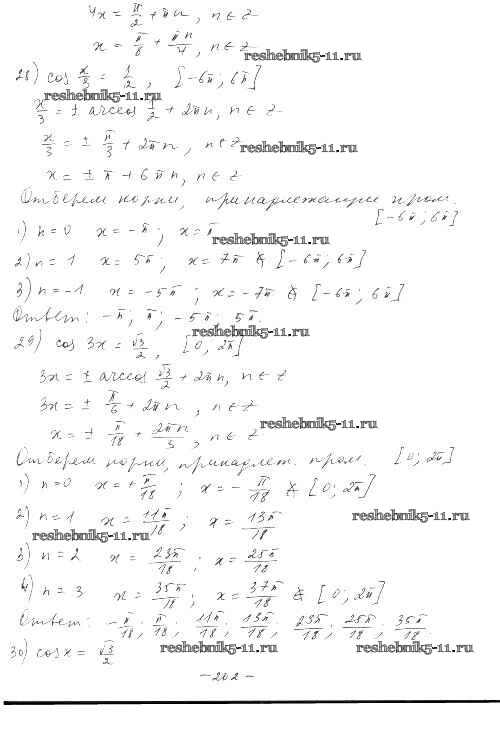 4x = π/2 + πn, n ∈ z
x = π/8 + πn/4, n ∈ z
reshebnik5-11.ru
28) cos x/3 = 1/2, [-6π; 6π]
reshebnik5-11.ru
x/3 = ± arccos 1/2 + 2πn, n ∈ z
x/3 = ± π/3 + 2πn, n ∈ z
reshebnik5-11.ru
x = ± π + 6πn, n ∈ z
Отберем корни, принадлежащие пром. [-6π; 6π]
1) n=0 x = -π; x = π
reshebnik5-11.ru
2) n = 1 x = 5π; x = 7π ∉ [-6π; 6π]
3) n = -1 x = -5π; x = -7π ∉ [-6π; 6π]
Ответ: -π; π; -5π; 5π.
reshebnik5-11.ru
29) cos 3x = √3/2, [0; 2π]
3x = ± arccos √3/2 + 2πn, n ∈ z
3x = ± π/6 + 2πn, n ∈ z
reshebnik5-11.ru
x = ± π/18 + 2πn/3, n ∈ z
Отберем корни, принадлеж. пром. [0; 2π]
1) n=0 x = + π/18; x = - π/18 ∉ [0; 2π]
2) n=1 x = 11π/18; x = 13π/18
reshebnik5-11.ru
reshebnik5-11.ru
3) n = 2 x = 23π/18; x = 25π/18
4) n = 3 x = 35π/18; x = 37π/18 ∉ [0; 2π]
Ответ: -π/18; π/18; 11π/18; 13π/18; 23π/18; 25π/18; 35π/18.
30) cos x = √3/2
reshebnik5-11.ru
reshebnik5-11.ru
- 202 -